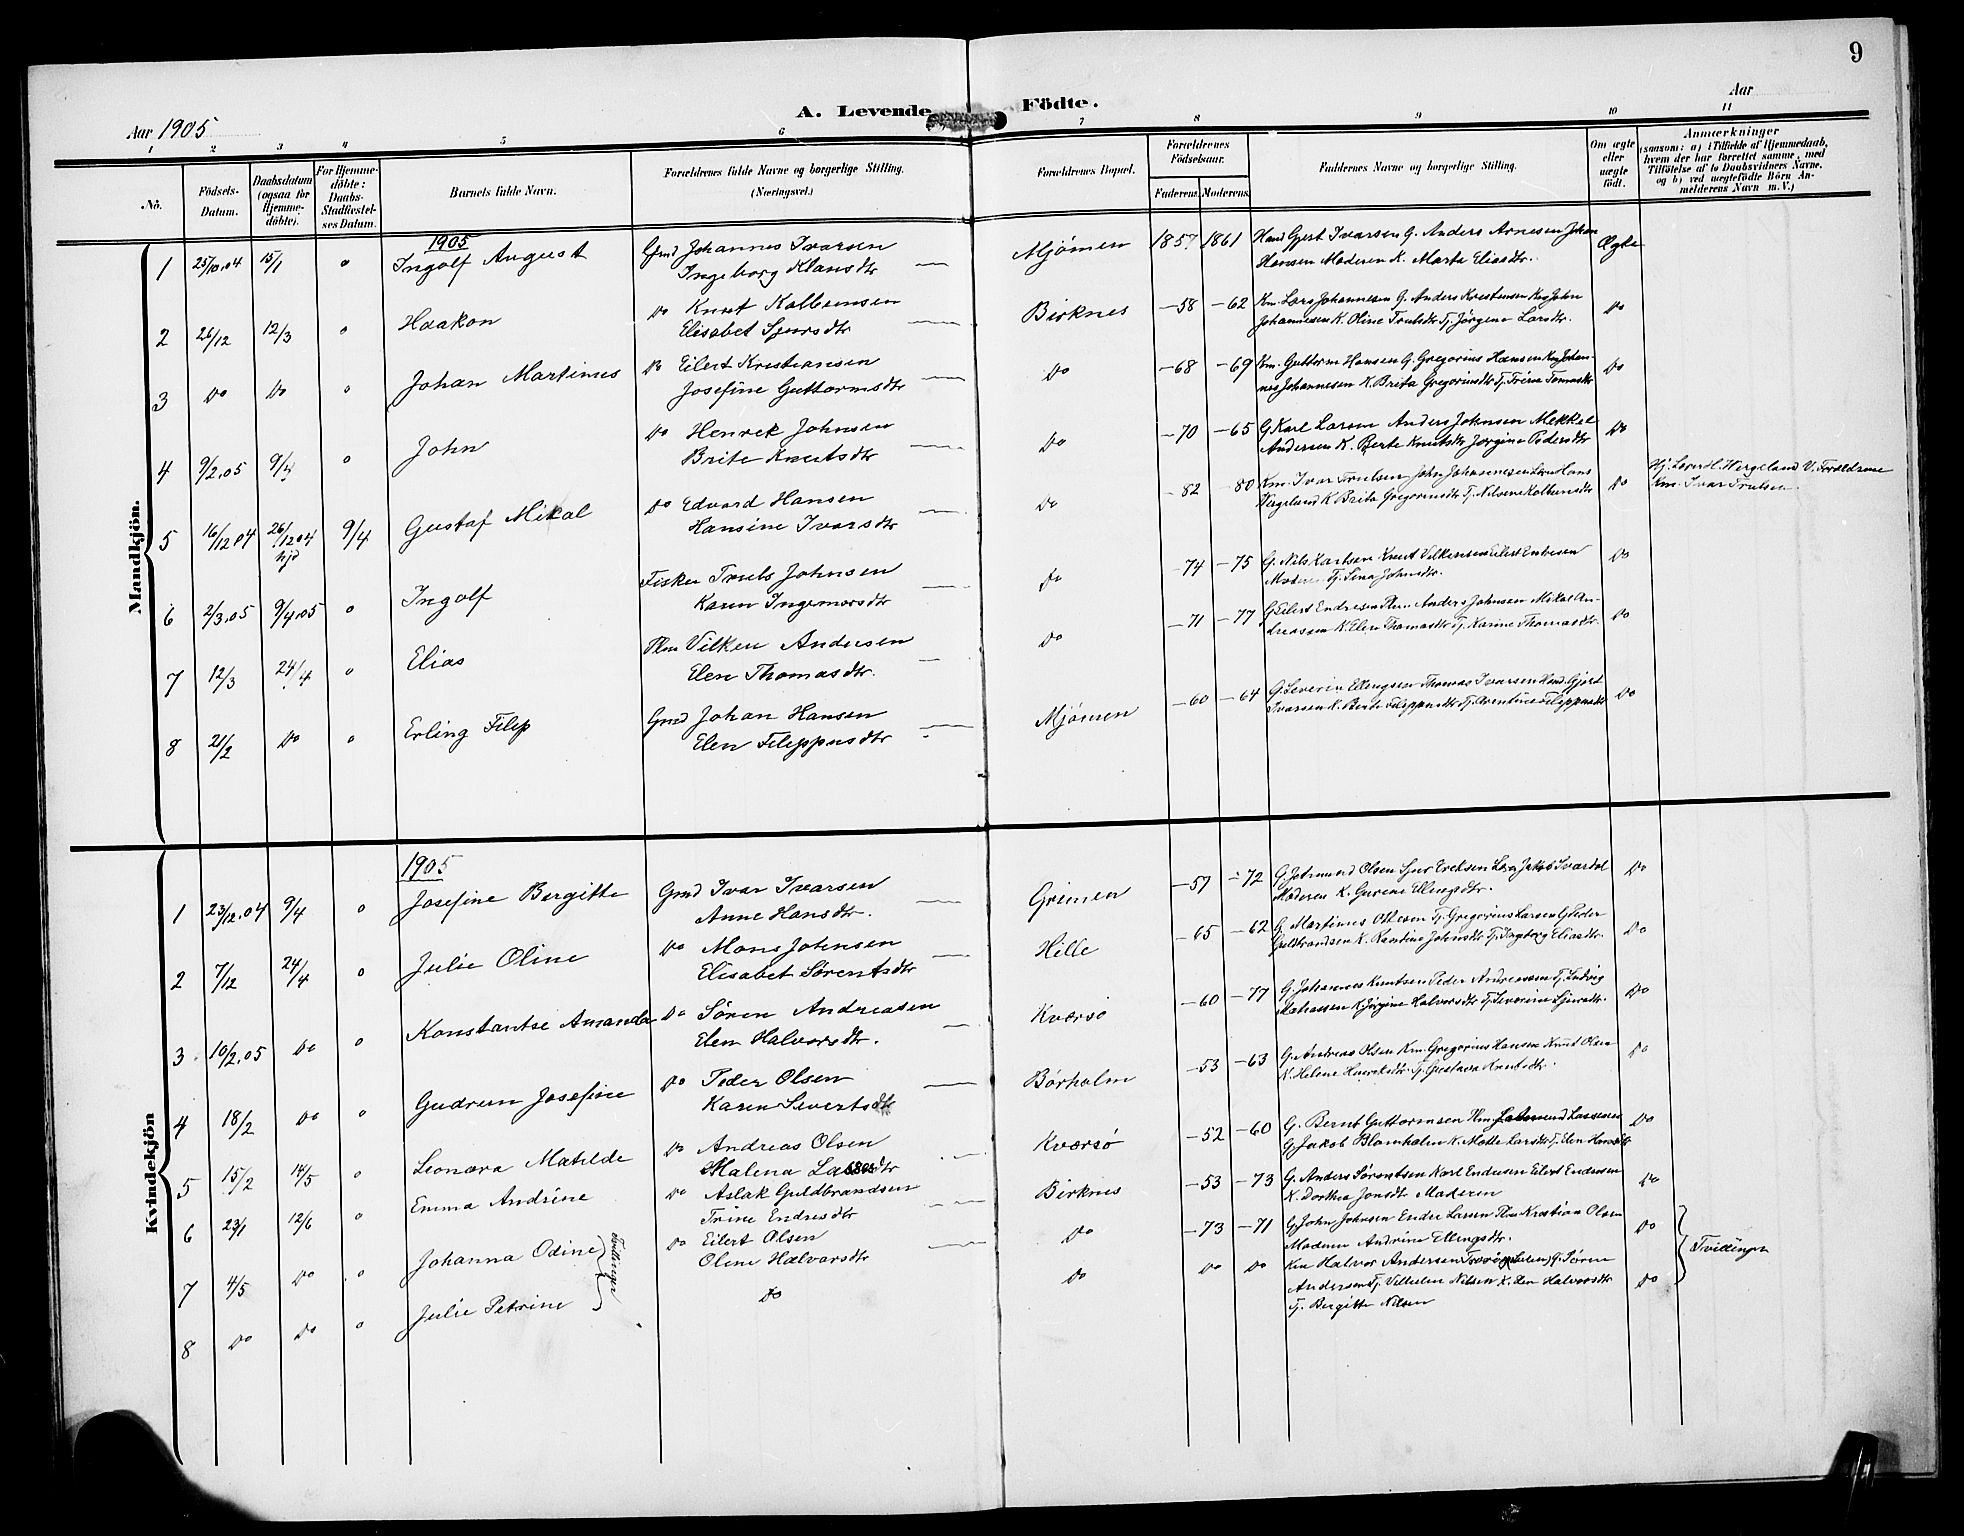 9
A. Levende Födte.
Aar 1905
Aar
1 2 3 4 5 6 7 8 9 10 11
No.
Födsels-Datum.
Daabsdatum (ogsaa for Hjemme-döbte).
For Hjemme-döbte: Daabs-Stadfæstel-ses Datum.
Barnets fulde Navn.
Forældrenes fulde Navne og borgerlige Stilling. (Næringsvei.)
Forældrenes Bopæl.
Forældrenes Födselsaar.
Faderens
Moderens
Faddernes Navne og borgerlige Stilling.
Om ægte eller uægte födt.
Anmærkninger
(saasom: a) i Tilfælde af Hjemmedaab, hvem der har forrettet samme, med Tilföielse af to Daabsvidners Navne. og b) ved uægtefödte Börn An-melderens Navn m. V.)
Mandkjön.
1905
1 25/10.04 15/1 o Ingolf August Gmd Johannes Ivarsen Mjømen 1857 1861 Gjert Ivarsen G. Anders Arnesen Johan Ægte
Ingeborg Klausdtr Hansen Moderen K. Marta Eliasdtr.
2 26/12 12/3 o Haakon Do Knut Kolbensen Birknes -58 -62 Km. Lars Johannesen G. Anders Kristensen John Do
Elisabet Sjursdtr Johannesen K. Oline Trulsdtr Tj. Jørgine Larsdtr.
3 Do Do o Johan Martinus Do Eilert Kristiansen Do -68 -69 Km. Guttorm Hansen G. Gregorius Hansen Johan- Do
Josefine Guttormsdtr nes Johannesen K. Brita Gregoriusdtr Tj. Trine Tomasdtr
4 9/2.05 9/4 o John Do Henrik Johnsen Do -70 -65 G. Karl Larsen Anders Johnsen Mekkel Do
Brite Knutsdtr Andersen K. Berte Knutsdtr Jørgine Pedersdtr
5 16/12 04 26/12 04 hjd 9/4 Gustaf Mikal Do Edvard Hansen Do -82 -80 Km. Ivar Trulsen John Johannesen Hans Do Hj. Wergeland V. Forældrene
Hansine Ivarsdtr Vergeland K. Brita Gregoriusdtr Tj. Nilsine Kolbensdtr Km. Ivar Trulsen.
6 2/3.05 9/4.05 o Ingolf Fisker Truls Johnsen Do -74 -75 G. Nils Karlsen Knut Vilkensen Eilert Do
Karen Ingemarsdtr Moderen Tj. Lina Johnsdtr.
7 12/3 24/4 o Elias Vilken Andersen Do -71 -77 G. Eilert Endresen Anders Johnsen Mikal An- Do
Elen Thomasdtr. dreassen K. Elen Thomasdtr Tj. Karine Thomasdtr.
8 21/2 Do o Erling Filip Gmd Johan Hansen Mjømen -60 -64 G. Severin Ellingsen Thomas Ivarsen Gjert Do
Elen Filippusdtr Ivarsen K. Berte Filippusdtr Tj. Filippusdtr
Kvindekjön
1905
1 23/12.04 9/4 o Josefine Bergitte Gmd Ivar Ivarsen Grimen -57 -72 G. Olsen Sjur Eriksen Jakob Svardal Do
Anne Hansdtr. Moderen K. Gurine Ellingsdtr.
2 7/12 24/4 o Julie Oline Do Mons Johnsen Hille -65 -62 G. Martinus Olsen Tj. Gregorius Larsen G. Peder Do
Elisabet Sørentsdtr Guldbrandsen K. Johnsdtr Tj. Ingborg Eliasdtr.
3 10/2.05 Do o Konstantse Amanda Do Sören Andreasen Kværsø -60 -77 G. Johannes Knutsen Peder Andreasen Tj. Ludvig Do
Elen Halvorsdtr. K. Jørgine Halvorsdtr Tj. Severine Sjursdtr.
4 18/2 Do o Gudrun Josefine Do Peder Olsen Børholm -53 -63 G. Andreas Olsen Km. Gregorius Hansen Knut Olsen Do
Karen Sivertsdtr K. Helene Henriksdtr Tj. Gustava Knutsdtr.
5 15/2 14/5 o Leonora Matilde Do Andreas Olsen Kværsø -52 -60 G. Bernt Guttormsen Km. Lassesen Do
Malena Lassesdtr G. Jakob Blomholm K. Mette Larsdtr Tj. Elen Hansdtr
6 23/1 12/6 o Emma Andrine Do Aslak Guldbrandsen Birknes -53 -73 G. Anders Sørentsen Karl Endresen Eilert Endresen Do
Trine Endresdtr K. Dorthea Jonsdtr Moderen
7 4/5 Do o Johanna Odine Do Eilert Olsen Do -73 -71 G. John Johnsen Endre Larsen Kristian Olsen Do
Oline Halvorsdtr Moderen Andrine Ellingsdtr. Tvillinger
8 Do Do o Julie Petrine Tvillinger Do Do Do Do Km Halvor Andersen Tj. Sören Do
Andersen Tj. Vilhelm Nilsen K. Elen Halvorsdtr
Tj. Bergitte Nilsen